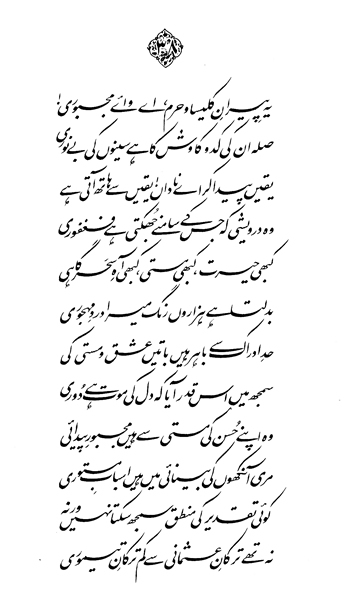 ۳۸
یہ پیرانِ کلیسا و حرم، اے وائے مجبوری!
صلہ ان کی کد و کاوش کا ہے سینوں کی بے نوری
یقیں پیدا کر اے ناداں! یقیں سے ہاتھ آتی ہے
وہ درویشی، کہ جس کے سامنے جھکتی ہے فغفوری
کبھی حیرت، کبھی مستی، کبھی آہِ سحرگاہی
بدلتا ہے ہزاروں رنگ میرا دردِ مہجوری
حدِ ادراک سے باہر ہیں باتیں عشق و مستی کی
سمجھ میں اس قدر آیا کہ دل کی موت ہے، دوری
وہ اپنے حُسن کی مستی سے ہیں مجبورِ پیدائی
مری آنکھوں کی بینائی میں ہیں اسبابِ مستوری
کوئی تقدیر کی منطق سمجھ سکتا نہیں ورنہ
نہ تھے ترکانِ عثمانی سے کم ترکانِ تیموری